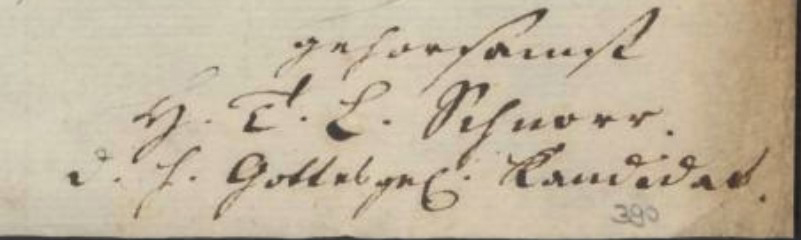 gehorsamst
H. T. L. Schnorr.
d. h. Gottesgel. Kandidat.
390